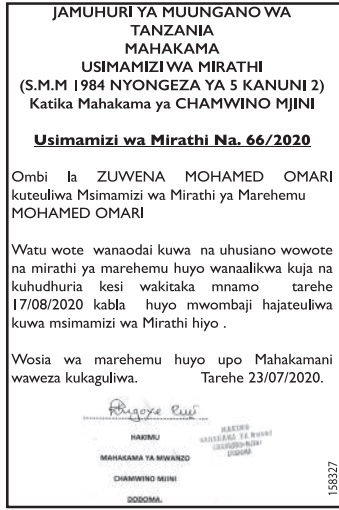 JAMUHURI YA MUUNGANO WA
TANZANIA
MAHAKAMA
USIMAMIZI WA MIRATHI
(S.M.M 1984 NYONGEZA YA 5 KANUNI 2)
Katika Mahakama ya CHAMWINO MJINI
Usimamizi wa Mirathi Na. 66/2020
Ombi la ZUWENA MOHAMED OMARI
kuteuliwa Msimamizi wa Mirathi ya Marehemu
MOHAMED OMARI
Watu wote wanaodai kuwa na uhusiano wowote
na mirathi ya marehemu huyo wanaalikwa kuja na
kuhudhuria kesi wakitaka mnamo tarehe
17/08/2020 kabla huyo mwombaji hajateuliwa
kuwa msimamizi wa Mirathi hiyo .
Wosia wa marehemu huyo upo Mahakamani
waweza kukaguliwa. Tarehe 23/07/2020.
HAKIMU
MAHAKAMA YA MWANZO
CHAMWINO MJINI
DODOMA.
HAKIMU
MAHAKAMA YA MWANZO
CHAMWINO-MJINI
DODOMA
158327